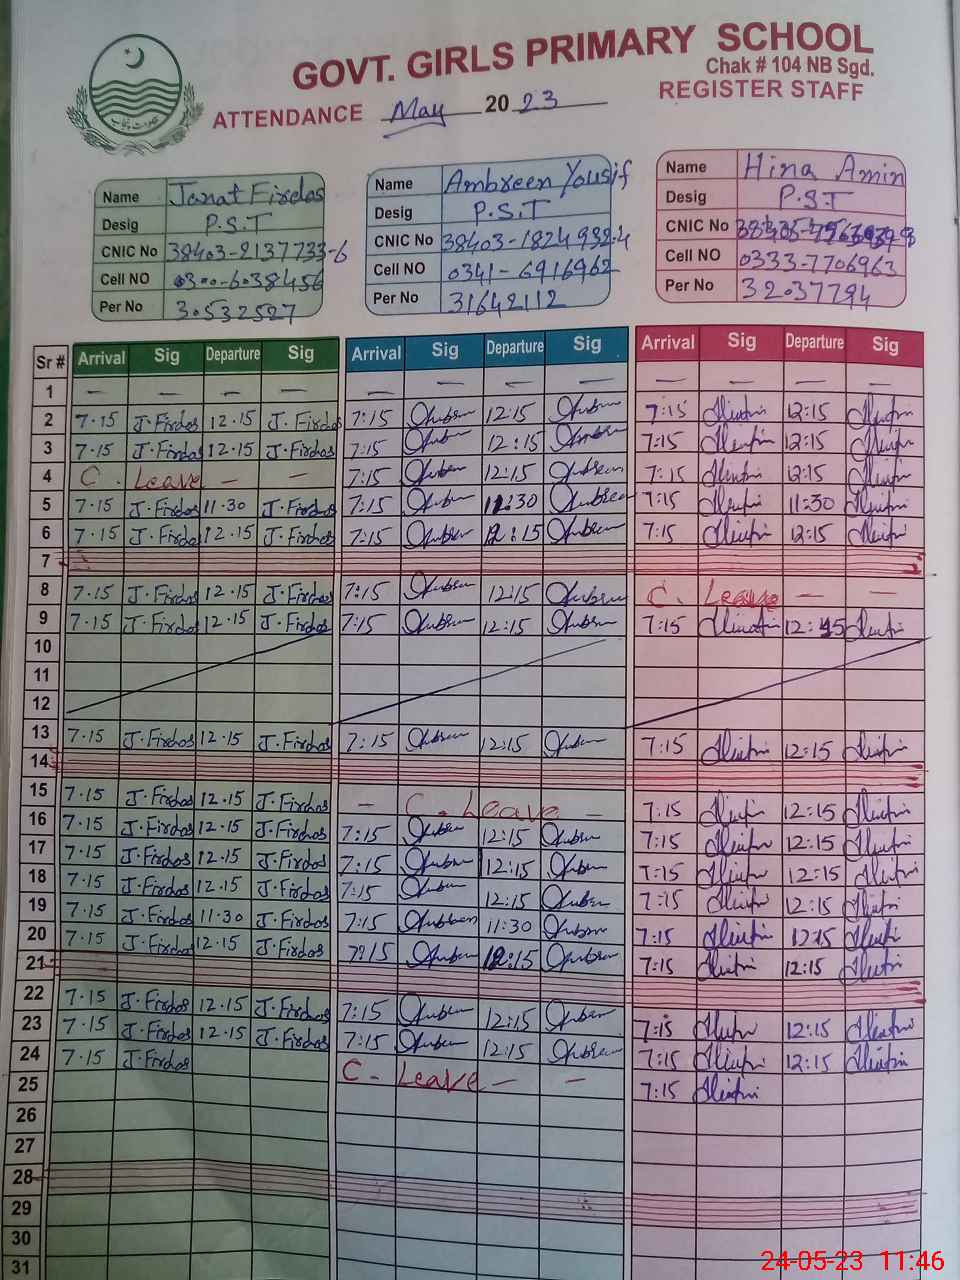 GOVT. GIRLS PRIMARY SCHOOL
Chak # 104 NB Sgd.
ATTENDANCE May 2023 REGISTER STAFF
Name Janat Firdos
Desig P.S.T
CNIC No 38403-2137733-6
Cell NO 0300-6038456
Per No 30532527
Name Ambreen Yousif
Desig P.S.T
CNIC No 38403-1824932-4
Cell NO 0341-6916962
Per No 31642112
Name Hina Amin
Desig P.S.T
CNIC No
Cell NO 0333-7706963
Per No 32037794
Sr # Arrival Sig Departure Sig Arrival Sig Departure Sig Arrival Sig Departure Sig
1 — — — — — — — — — — — —
2 7.15 J.Firdos 12.15 J.Firdos 7:15 12:15 7:15 12:15
3 7.15 J.Firdos 12.15 J.Firdos 7:15 12:15 7:15 12:15
4 C. Leave — — 7:15 12:15 7:15 12:15
5 7.15 J.Firdos 11.30 J.Firdos 7:15 11:30 7:15 11:30
6 7.15 J.Firdos 12.15 J.Firdos 7:15 12:15 7:15 12:15
7
8 7.15 J.Firdos 12.15 J.Firdos 7:15 12:15 C. Leave — —
9 7.15 J.Firdos 12.15 J.Firdos 7:15 12:15 7:15 12:15
10
11
12
13 7.15 J.Firdos 12.15 J.Firdos 7:15 12:15 7:15 12:15
14
15 7.15 J.Firdos 12.15 J.Firdos — C. Leave — 7:15 12:15
16 7.15 J.Firdos 12.15 J.Firdos 7:15 12:15 7:15 12:15
17 7.15 J.Firdos 12.15 J.Firdos 7:15 12:15 7:15 12:15
18 7.15 J.Firdos 12.15 J.Firdos 7:15 12:15 7:15 12:15
19 7.15 J.Firdos 11.30 J.Firdos 7:15 11:30 7:15 12:15
20 7.15 J.Firdos 12.15 J.Firdos 7:15 12:15 7:15 12:15
21
22 7.15 J.Firdos 12.15 J.Firdos 7:15 12:15 7:15 12:15
23 7.15 J.Firdos 12.15 J.Firdos 7:15 12:15 7:15 12:15
24 7.15 J.Firdos C. Leave — — 7:15
25
26
27
28
29
30
31
24-05-23 11:46